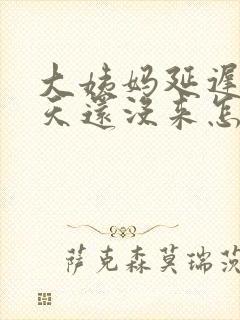 大姨妈延遲
天還沒来怎
萨克森莫瑞茨